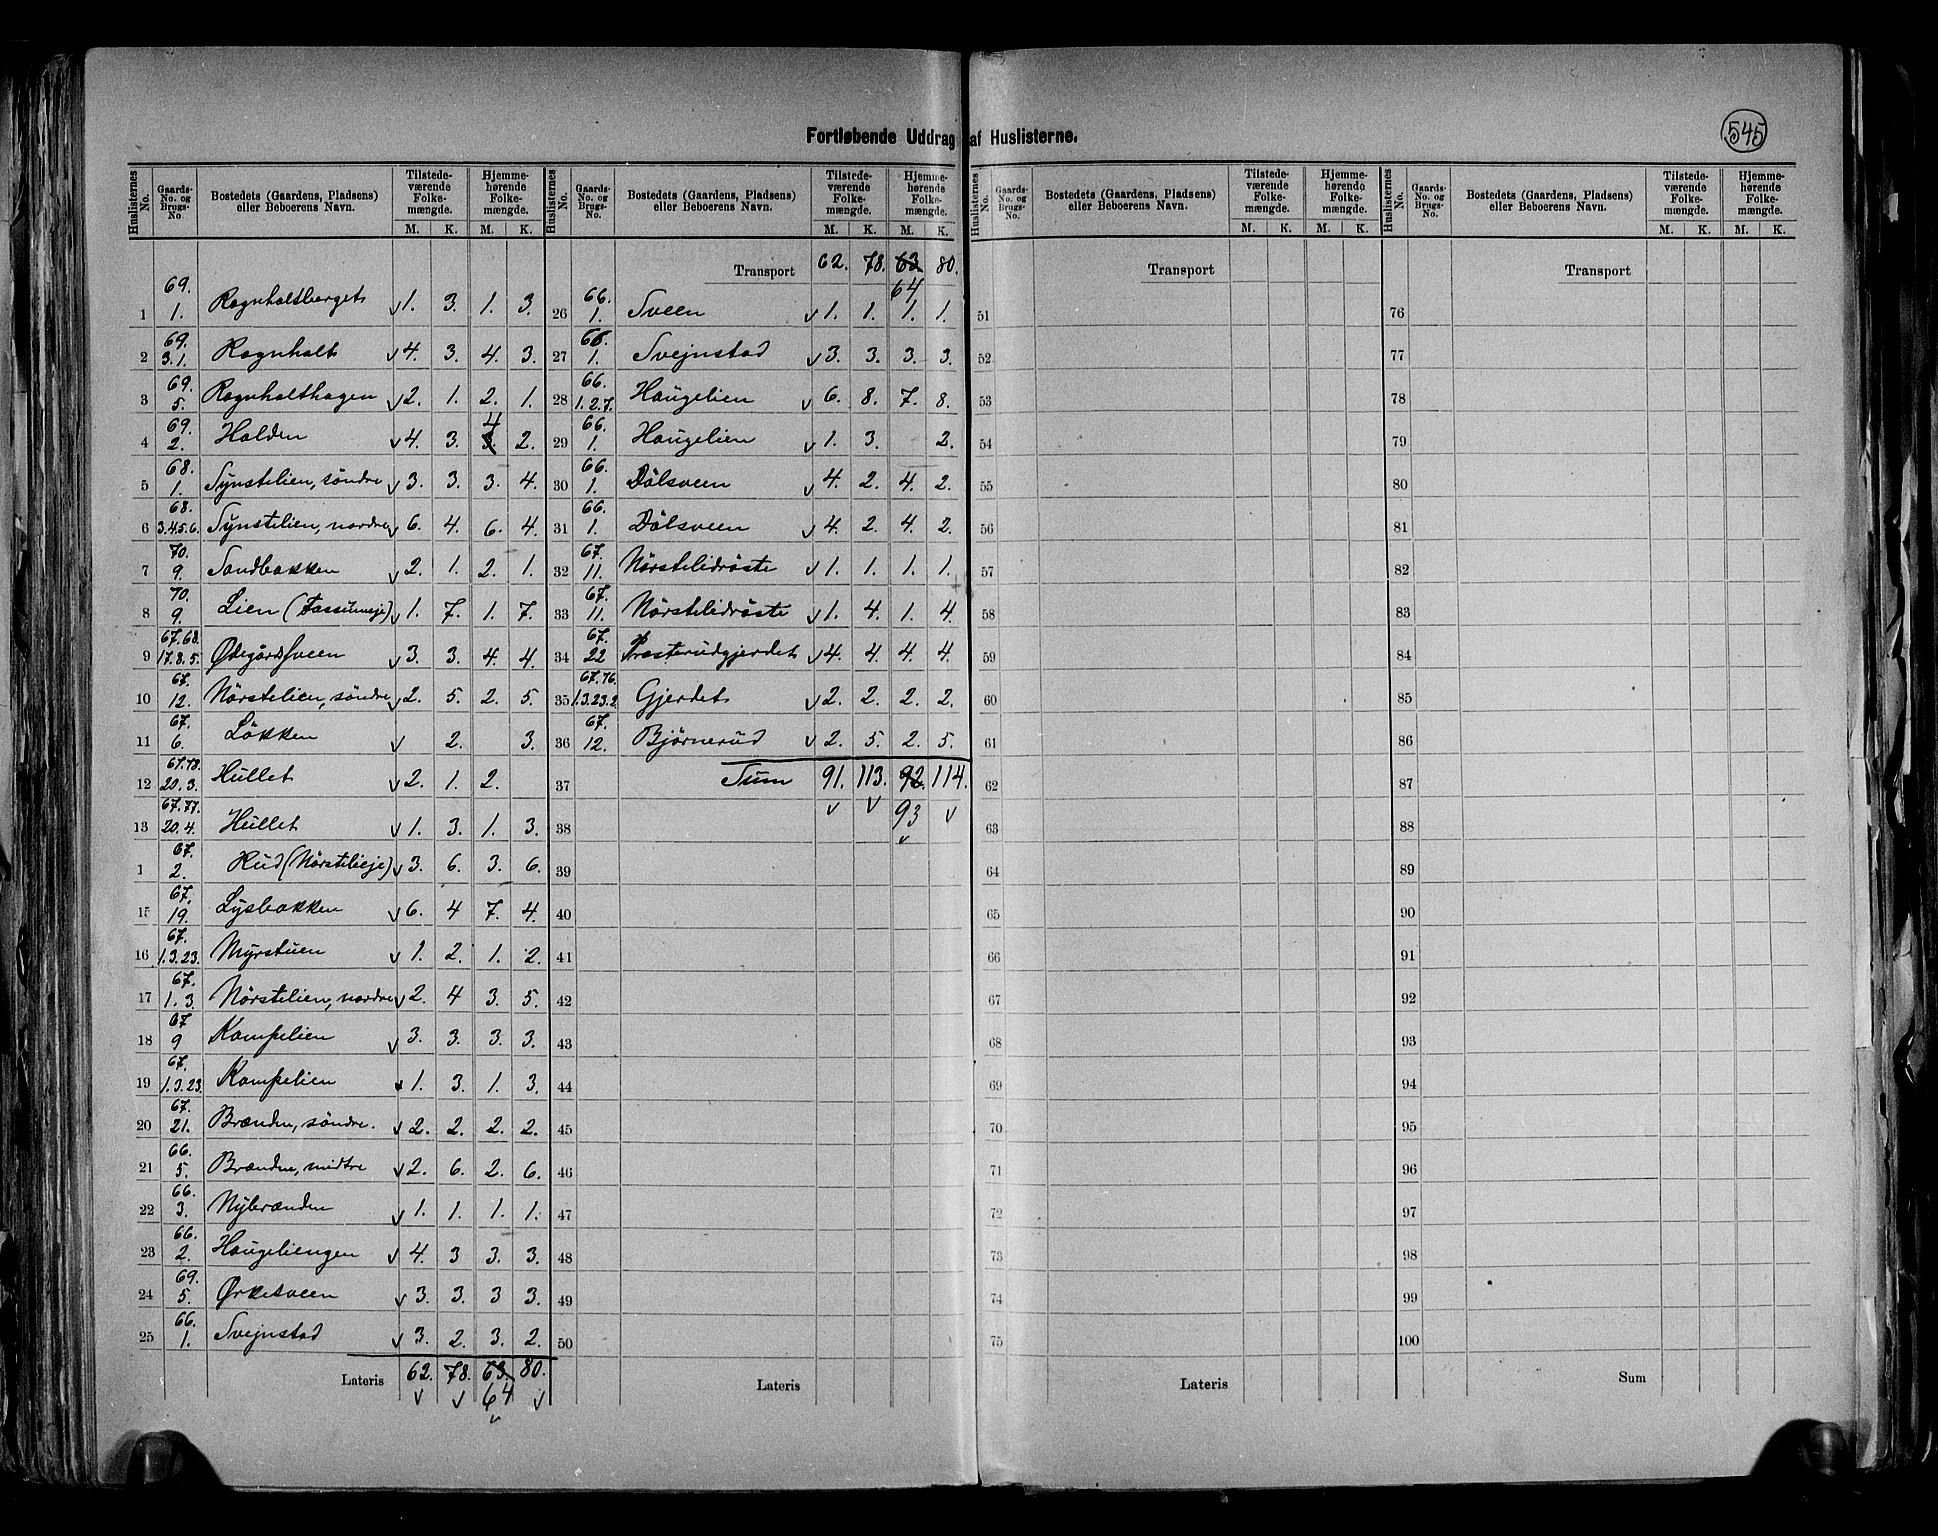 Fortløbende Uddrag af Huslisterne.
545
Huslisternes No. | Gaards-No. og Brugs-No. | Bostedets (Gaardens, Pladsens) eller Beboerens Navn. | Tilstedeværende Folkemængde. M. K. | Hjemmehørende Folkemængde. M. K.
1 | 69. 1. | Rognholtberget | v 1. | 3. | 1. | 3.
2 | 69. 3.1. | Rognholt | v 4. | 3. | 4. | 3.
3 | 69. 5. | Rognholthagen | v 2. | 1. | 2. | 1.
4 | 69. 2. | Holden | v 4. | 3. | 3. 4 | 2.
5 | 68. 1. | Synstelien, søndre | v 3. | 3. | 3. | 4.
6 | 68. 3.4.5.6. | Synstelien, nordre | v 6. | 4. | 6. | 4.
7 | 70. 9. | Sandbakken | v 2. | 1. | 2. | 1.
8 | 70. 9. | Lien | v 1. | 7. | 1. | 7.
9 | 67.68. 17.8.5. | Ødegårdsveen | v 3. | 3. | 4. | 4.
10 | 67. 12. | Nörstelien, søndre | v 2. | 5. | 2. | 5.
11 | 67. 6. | Løkken | v | 2. | | 3.
12 | 67.78. 20.3. | Hullet | v 2. | 1. | 2. |
13 | 67.77. 20.4. | Hullet | v 1. | 3. | 1. | 3.
1 | 67. 2. | Rud (Nörstelieje) | v 3. | 6. | 3. | 6.
15 | 67. 19. | Lysbakken | v 6. | 4 | 7. | 4.
16 | 67. 1.3.23. | Myrstuen | v 1. | 2. | 1. | 2.
17 | 67. 1.3. | Nörstelien, nordre | v 2. | 4 | 3. | 5.
18 | 67 9 | Kampelien | v 3. | 3. | 3. | 3.
19 | 67. 1.3.23. | Kampelien | v 1. | 3. | 1. | 3.
20 | 67. 21. | Brænden, søndre. | v 2. | 2. | 2. | 2.
21 | 66. 5. | Brænden, midtre | v 2. | 6. | 2. | 6.
22 | 66. 3. | Nybrænden | v 1. | 1. | 1. | 1.
23 | 66. 2. | Haugeliengen | v 4. | 3 | 3. | 3.
24 | 69. 5. | Ørkesveen | v 3. | 3. | 3 | 3.
25 | 66. 1. | Svejnstad | v 3. | 2. | 3. | 2.
Lateris | 62. v | 78. v | 63. 64 v | 80. v
Huslisternes No. | Gaards-No. og Brugs-No. | Bostedets (Gaardens, Pladsens) eller Beboerens Navn. | Tilstedeværende Folkemængde. M. K. | Hjemmehørende Folkemængde. M. K.
Transport | 62. | 78. | 63. 64 | 80.
26 | 66. 1. | Sveen | v 1. | 1. | 1. | 1.
27 | 66. 1. | Svejnstad | v 3. | 3. | 3. | 3.
28 | 66. 1.2.7. | Haugelien | v 6. | 8. | 7. | 8.
29 | 66. 1. | Haugelien | v 1. | 3. | | 2.
30 | 66. 1. | Dölsveen | v 4. | 2. | 4. | 2.
31 | 66. 1. | Dölsveen | v 4. | 2. | 4. | 2.
32 | 67. 11. | Nörstelidröste | v 1. | 1. | 1. | 1.
33 | 67. 11. | Nörstelidröste | v 1. | 4. | 1. | 4.
34 | 67. 22 | Prosterudgjerdet | v 4. | 4. | 4. | 4.
35 | 67.76. 1.3.23.2 | Gjerdet | v 2. | 2. | 2. | 2.
36 | 67. 12. | Björnerud | v 2. | 5. | 2. | 5.
37 | Sum | 91. v | 113. v | 92. 93 v | 114. v
38
39
40
41
42
43
44
45
46
47
48
49
50
Lateris
Huslisternes No. | Gaards-No. og Brugs-No. | Bostedets (Gaardens, Pladsens) eller Beboerens Navn. | Tilstedeværende Folkemængde. M. K. | Hjemmehørende Folkemængde. M. K.
Transport
51
52
53
54
55
56
57
58
59
60
61
62
63
64
65
66
67
68
69
70
71
72
73
74
75
Lateris
Huslisternes No. | Gaards-No. og Brugs-No. | Bostedets (Gaardens, Pladsens) eller Beboerens Navn. | Tilstedeværende Folkemængde. M. K. | Hjemmehørende Folkemængde. M. K.
Transport
76
77
78
79
80
81
82
83
84
85
86
87
88
89
90
91
92
93
94
95
96
97
98
99
100
Sum